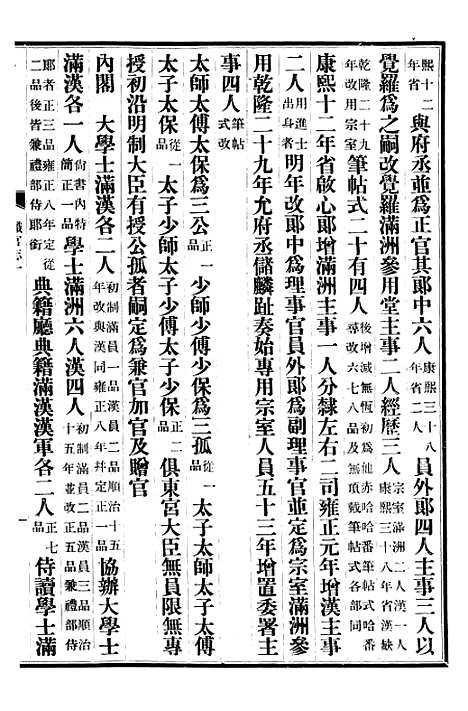 熙十二年省與府丞並爲正官其郞中六人康熙三十八年省二人員外郞四人主事三人以
覺羅爲之嗣改覺羅滿洲參用堂主事二人經歷三人宗室滿洲二人漢一人康熙三十八年省漢缺
乾隆二十九年改用宗室筆帖式二十有四人後增減無恆初爲他赤哈哈番筆帖式哈番尋改六七八品及無項戴筆帖式各部同
康熙十二年省啟心郞增滿洲主事一人分隸左右二司雍正元年增漢主事
二人用進士出身者明年改郞中爲理事官員外郞爲副理事官並定爲宗室滿洲參
用乾隆二十九年允府丞儲麟趾奏始專用宗室人員五十三年增置委署主
事四人筆帖式改
太師太傅太保爲三公正一品少師少傅少保爲三孤從一品太子太師太子太傅
太子太保從一品太子少師太子少傅太子少保正二品俱東宮大臣無員限無專
授初沿明制大臣有授公孤者嗣定爲兼官加官及贈官
內閣 大學士滿漢各二人初制滿員一品漢員二品順治十五年改與漢同雍正八年幷定正一品協辦大學士
滿漢各一人尚書內特簡正一品學士滿洲六人漢四人初制滿員二品漢員三品順治十五年並改正五品兼禮部侍
郞者正三品雍正八年定從二品後皆兼禮部侍郞銜典籍廳典籍滿漢漢軍各二人正七品侍讀學士滿
職官志一